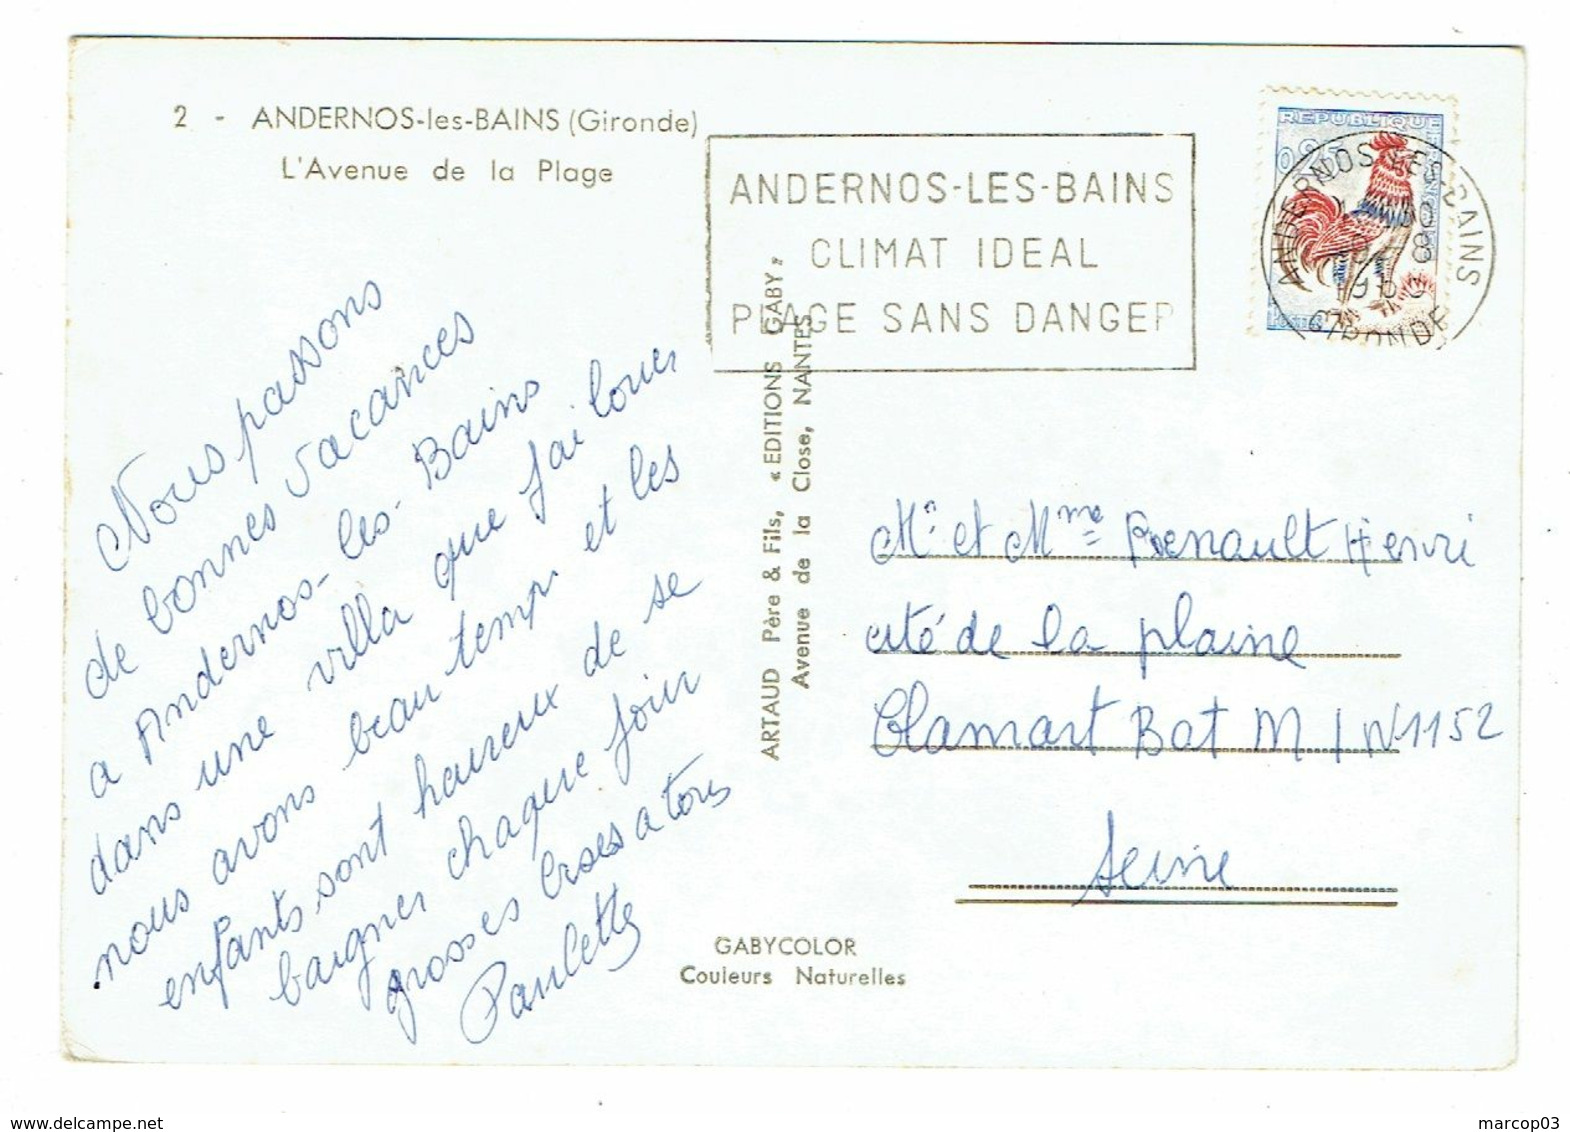 2 - ANDERNOS-les-BAINS (Gironde)
L'Avenue de la Plage
ANDERNOS-LES-BAINS
CLIMAT IDEAL
PLAGE SANS DANGER
REPUBLIQUE
0,25
POSTES
ANDERNOS-LES-BAINS
GIRONDE
Nous passons
de bonnes vacances
a Andernos-les-Bains
dans une villa que j'ai louer
nous avons beau temps et les
enfants sont heureux de se
baigner chaque jour
grosses bises a tous
Paulette
ARTAUD Père & Fils, « EDITIONS GABY »
Avenue de la Close, NANTES
Mr et Mme Renault Henri
cité de la plaine
Clamart Bat M 1 N°1152
Seine
GABYCOLOR
Couleurs Naturelles
marcop03